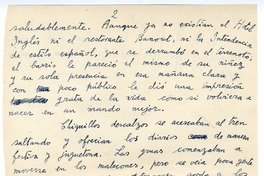 2
saludablemente. Aunque ya no existían el Hotel
Inglés ni el restorante Banout, ni la Intendencia
de estilo español, que se derrumbó en el terremoto,
el barrio le pareció el mismo de su niñez
y su sola presencia en esa mañana clara y
con poco público le dió una impresión
grata de la vida como si volviera a
nacer en un mundo mejor.
Chiquillos descalzos se acercaban al tren
saltando y ofrecían los diarios de manera
festiva y juguetona. Las grúas comenzaban a
moverse en los malecones, pero se veía poca gente